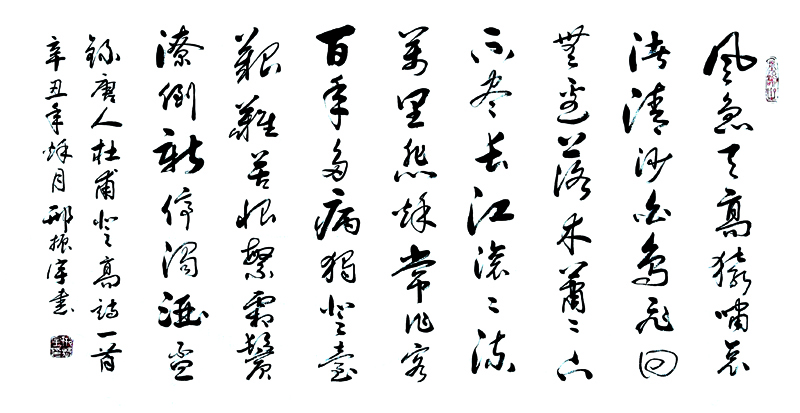 風急天高猿嘯哀
渚清沙白鳥飛回
無邊落木蕭〻下
不盡長江滾〻流
萬里悲秋常作客
百年多病獨登臺
艱難苦恨繁霜鬢
潦倒新停濁酒盃
錄唐人杜甫登高詩一首
辛丑年秋月邢振書